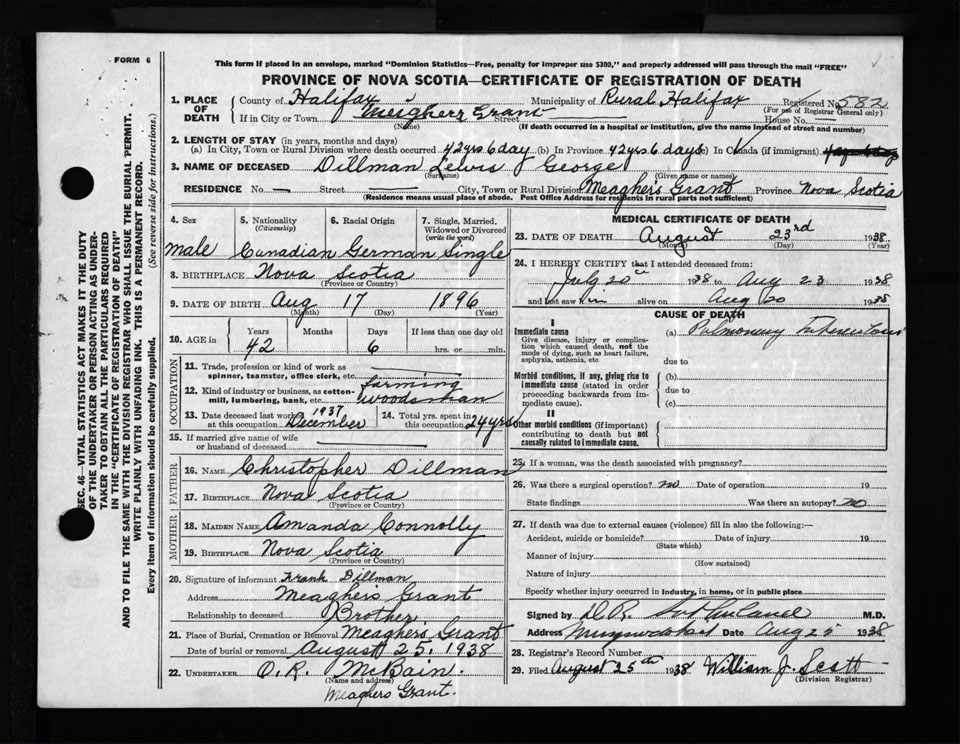 FORM 6
This form if placed in an envelope, marked "Dominion Statistics—Free, penalty for improper use $300," and properly addressed will pass through the mail "FREE"
PROVINCE OF NOVA SCOTIA—CERTIFICATE OF REGISTRATION OF DEATH
1. PLACE OF DEATH County of Halifax Municipality of Rural Halifax Registered No. 582
(For use of Registrar General only)
If in City or Town Meighers Grant Street House No.
(Name) (If death occurred in a hospital or institution, give the name instead of street and number)
2. LENGTH OF STAY (in years, months and days)
(a) In City, Town or Rural Division where death occurred 42 yrs 6 day (b) In Province 42 yrs 6 days (c) In Canada (if immigrant)
3. NAME OF DECEASED Dillman Lewis George
(Surname) (Given name or names)
RESIDENCE No. — Street — City, Town or Rural Division Meaghers Grant Province Nova Scotia
(Residence means usual place of abode. Post Office Address for residents in rural parts not sufficient)
4. Sex 5. Nationality (Citizenship) 6. Racial Origin 7. Single, Married, Widowed or Divorced (write the word)
Male Canadian German Single
8. BIRTHPLACE Nova Scotia
(Province or Country)
9. DATE OF BIRTH Aug 17 1896
(Month) (Day) (Year)
10. AGE in Years Months Days If less than one day old
42 6 hrs. or min.
OCCUPATION
11. Trade, profession or kind of work as spinner, teamster, office clerk, etc. farming
12. Kind of industry or business, as cotton-mill, lumbering, bank, etc. woodsman
13. Date deceased last worked at this occupation 1937 December 14. Total yrs. spent in this occupation 24 yrs
15. If married give name of wife or husband of deceased
FATHER
16. NAME Christopher Dillman
17. BIRTHPLACE Nova Scotia
(Province or Country)
MOTHER
18. MAIDEN NAME Amanda Connolly
19. BIRTHPLACE Nova Scotia
(Province or Country)
20. Signature of informant Frank Dillman
Address Meaghers Grant
Relationship to deceased Brother
21. Place of Burial, Cremation or Removal Meaghers Grant
Date of burial or removal August 25, 1938
22. UNDERTAKER O. R. McBain.
(Name and address)
Meaghers Grant.
MEDICAL CERTIFICATE OF DEATH
23. DATE OF DEATH August 23rd 1938
(Month) (Day) (Year)
24. I HEREBY CERTIFY that I attended deceased from:
July 20 1938 to Aug 23 1938
and last saw him alive on Aug 20 1938
CAUSE OF DEATH
I
Immediate cause (a) Pulmonary Tuberculosis
Give disease, injury or complication which caused death, not the mode of dying, such as heart failure, asphyxia, asthenia, etc.
due to
Morbid conditions, if any, giving rise to immediate cause (stated in order proceeding backwards from immediate cause).
(b)
due to
(c)
II
Other morbid conditions (if important) contributing to death but not causally related to immediate cause.
25. If a woman, was the death associated with pregnancy?
26. Was there a surgical operation? no Date of operation 19
State findings Was there an autopsy? no
27. If death was due to external causes (violence) fill in also the following:—
Accident, suicide or homicide? Date of injury 19
(State which)
Manner of injury
(How sustained)
Nature of injury
Specify whether injury occurred in industry, in home, or in public place
Signed by D. R. Sutherland M.D.
Address Date Aug 25 1938
28. Registrar's Record Number
29. Filed August 25th 1938 William J. Scott
(Division Registrar)
SEC. 46—VITAL STATISTICS ACT MAKES IT THE DUTY
OF THE UNDERTAKER OR PERSON ACTING AS UNDER-
TAKER TO OBTAIN ALL THE PARTICULARS REQUIRED
IN THE "CERTIFICATE OF REGISTRATION OF DEATH"
AND TO FILE THE SAME WITH THE DIVISION REGISTRAR WHO SHALL ISSUE THE BURIAL PERMIT.
WRITE PLAINLY WITH UNFADING INK. THIS IS A PERMANENT RECORD.
Every item of information should be carefully supplied. (See reverse side for instructions.)